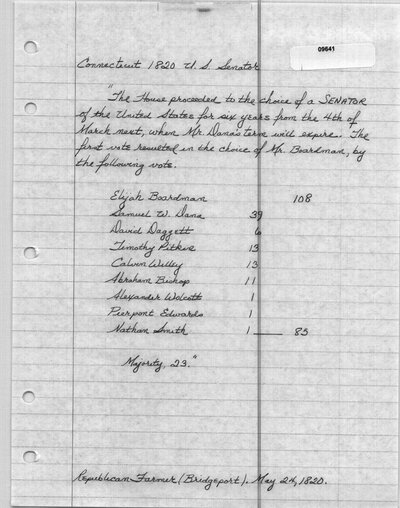 09641
Connecticut 1820 U.S. Senator
"The House proceeded to the choice of a SENATOR
of the United States for six years from the 4th of
March next, when Mr. Dana's term will expire. The
first vote resulted in the choice of Mr. Boardman, by
the following vote.
Elijah Boardman 108
Samuel W. Dana 39
David Daggett 6
Timothy Pitkin 13
Calvin Willey 13
Abraham Bishop 11
Alexander Wolcott 1
Pierpont Edwards 1
Nathan Smith 1 — 85
Majority, 23."
Republican Farmer (Bridgeport). May 24, 1820.